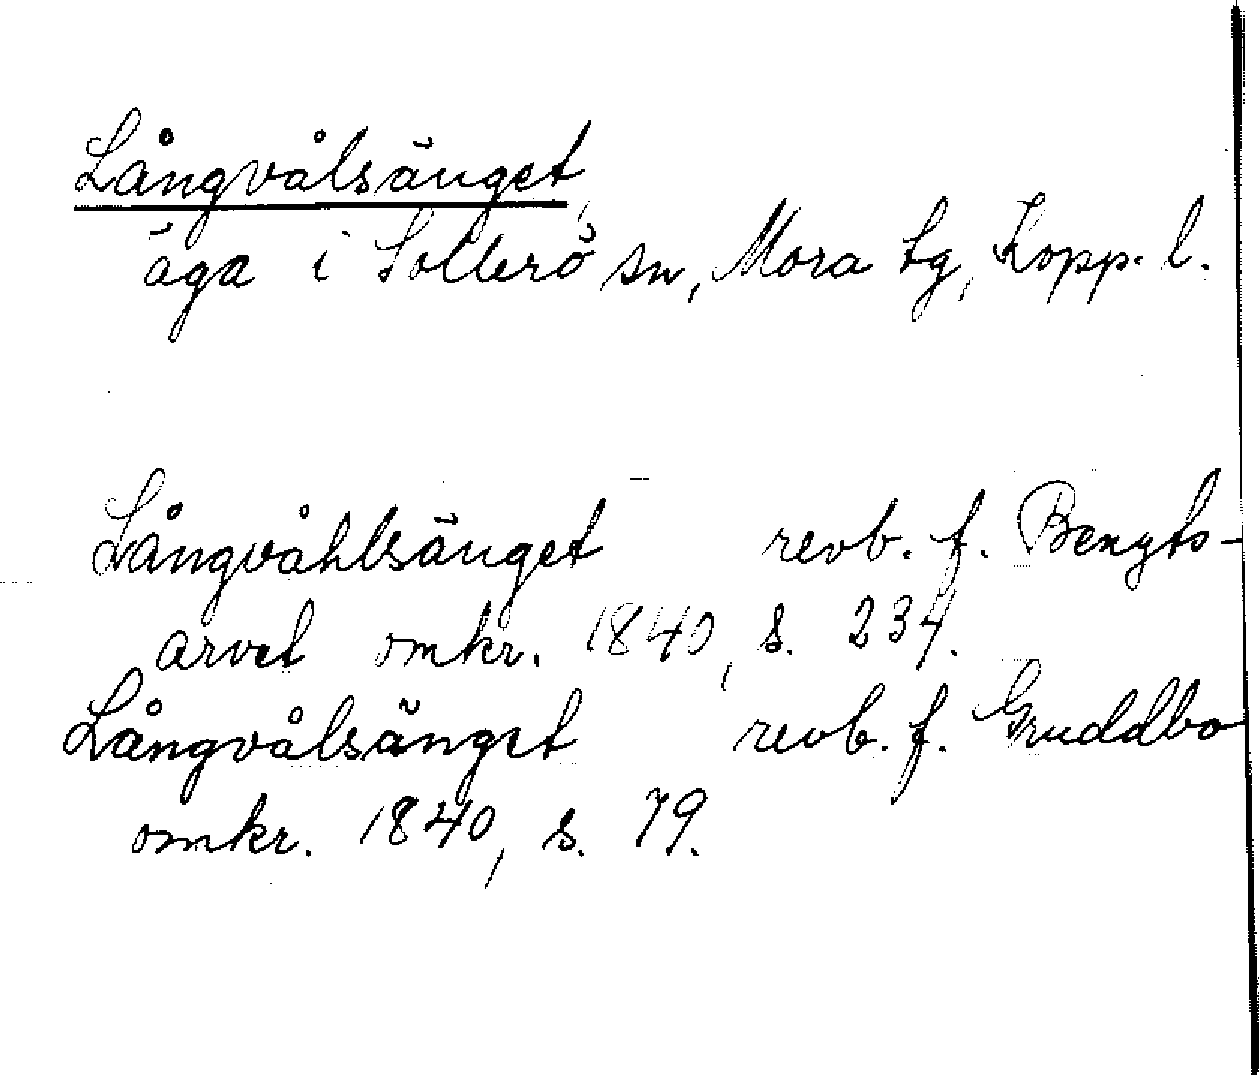 Långvålsänget,
äga i Sollerö sn, Mora tg, Kopp. l.
Långvåhlsänget revb. f. Bengts-
arvet omkr. 1840, s. 234.
Långvålsänget revb. f. Gruddbo
omkr. 1840, s. 79.